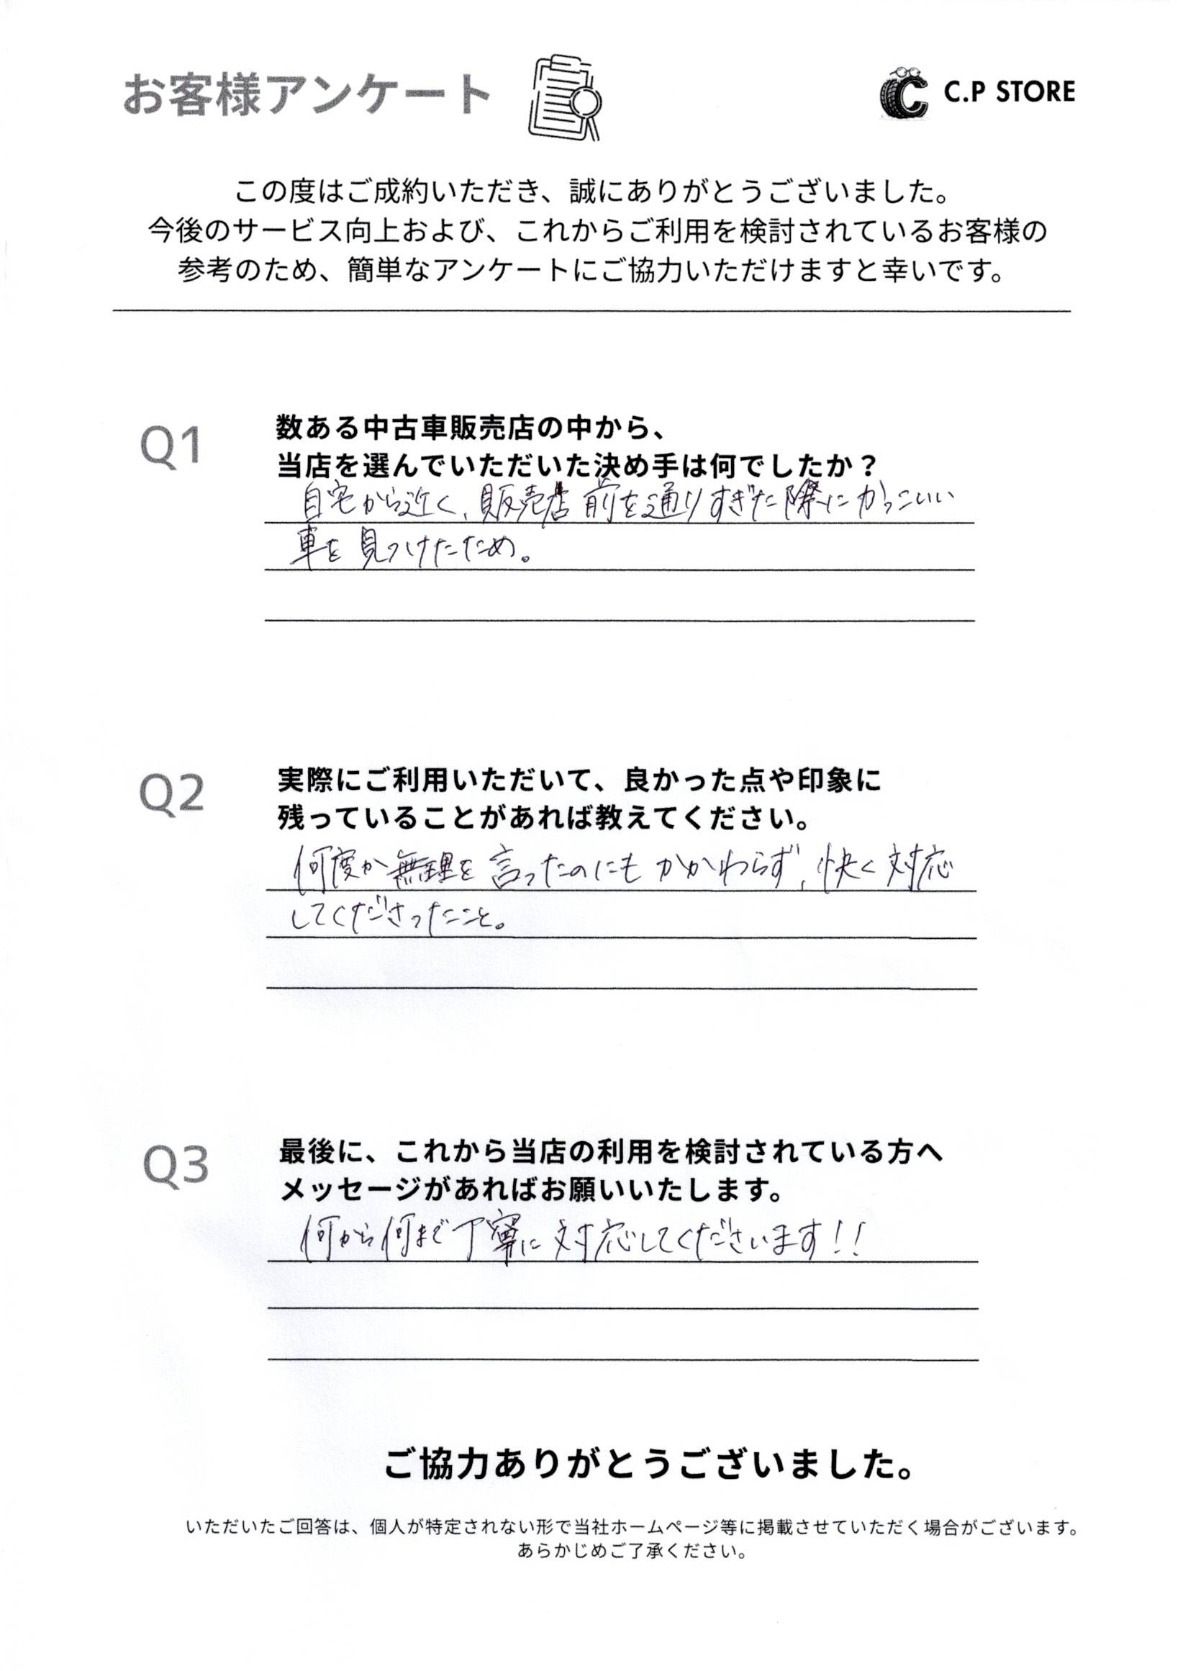 お客様アンケート
C.P STORE
この度はご成約いただき、誠にありがとうございました。
今後のサービス向上および、これからご利用を検討されているお客様の
参考のため、簡単なアンケートにご協力いただけますと幸いです。
Q1
数ある中古車販売店の中から、
当店を選んでいただいた決め手は何でしたか？
自宅から近く、販売店前を通りすぎた際にかっこいい
車を見つけたため。
Q2
実際にご利用いただいて、良かった点や印象に
残っていることがあれば教えてください。
何度か無理を言ったのにもかかわらず、快く対応
してくださったこと。
Q3
最後に、これから当店の利用を検討されている方へ
メッセージがあればお願いいたします。
何から何まで丁寧に対応してくださいます!!
ご協力ありがとうございました。
いただいたご回答は、個人が特定されない形で当社ホームページ等に掲載させていただく場合がございます。
あらかじめご了承ください。